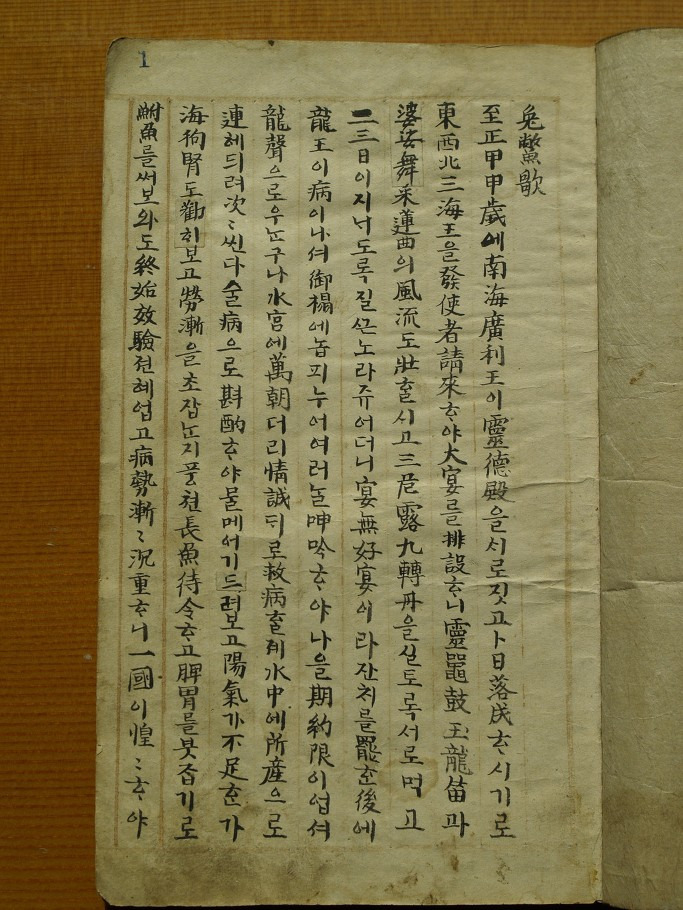 1
兎鱉歌
至正甲甲歲에南海廣利王이靈德殿을시로짓고卜日落成ᄒᆞ시기로
東西北三海王을發使者請來ᄒᆞ야大宴를排設ᄒᆞ니靈鼉鼓玉龍笛과
婆娑舞采蓮曲의風流도壯ᄒᆞᆯ시고三危露九轉丹을실토록서로먹고
二三日이지너도록질근노라쥬어더니宴無好宴이라잔치를罷ᄒᆞᆫ後에
龍王이病이나셔御榻에놉피누어여러놀呻吟ᄒᆞ야나을期約限이업셔
龍聲으로우ᄂᆞᆫ구나水宮에萬朝더리情誠되로救病ᄒᆞᆯ졔水中에所產으로
連헤듸려次〻씬다술病으로斟酌ᄒᆞ야물메어기드려보고陽氣가不足ᄒᆞᆫ가
海狗腎도勸히보고勞漸을초잡ᄂᆞᆫ지풍천長魚待令ᄒᆞ고脾胃를붓줍기로
鮒魚를써보와도終始效驗젼혜업고病勢漸〻沉重ᄒᆞ니一國이惶〻ᄒᆞ야